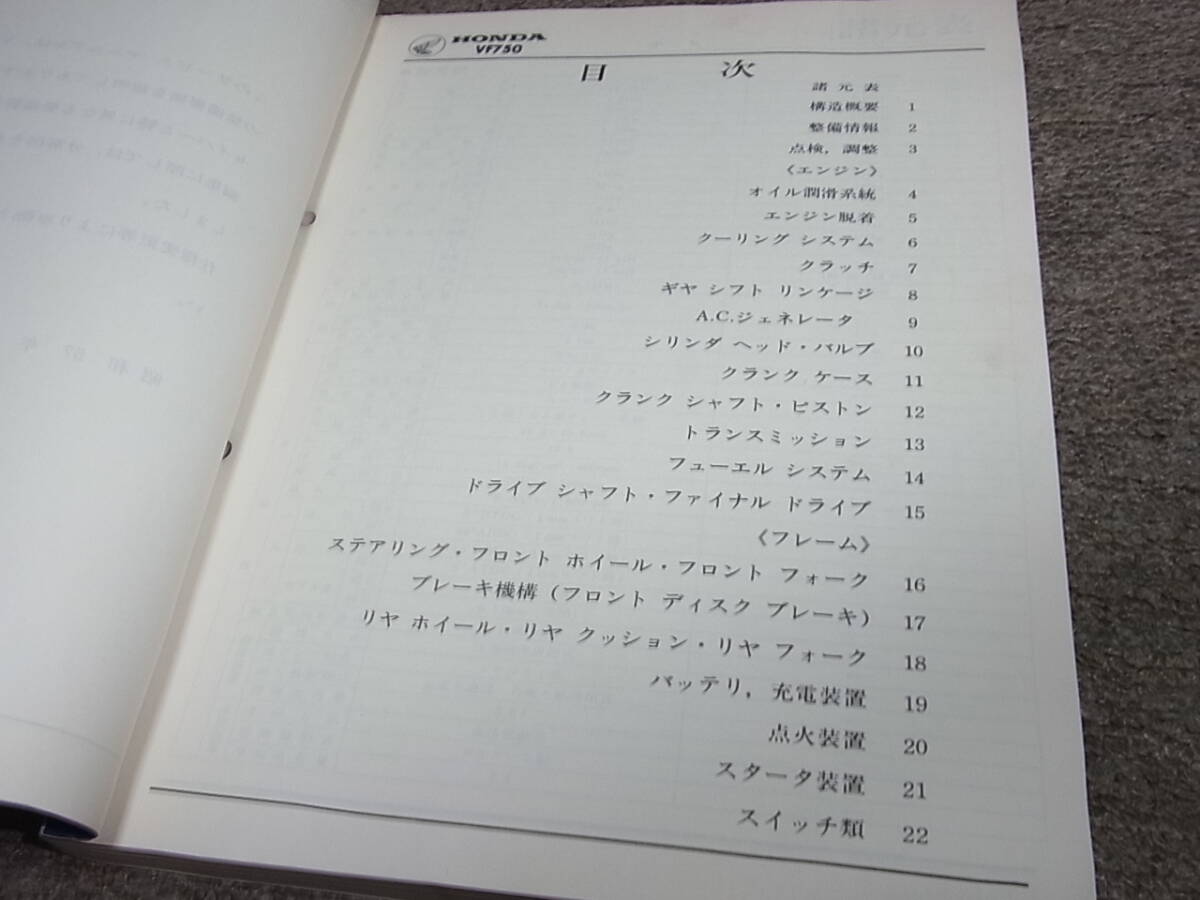 HONDA
VF750
目 次
諸元表
構造概要 1
整備情報 2
点検，調整 3
《エンジン》
オイル潤滑系統 4
エンジン脱着 5
クーリング システム 6
クラッチ 7
ギヤ シフト リンケージ 8
A.C.ジェネレータ 9
シリンダ ヘッド・バルブ 10
クランク ケース 11
クランク シャフト・ピストン 12
トランスミッション 13
フューエル システム 14
ドライブ シャフト・ファイナル ドライブ 15
《フレーム》
ステアリング・フロント ホイール・フロント フォーク 16
ブレーキ機構（フロント ディスク ブレーキ） 17
リヤ ホイール・リヤ クッション・リヤ フォーク 18
バッテリ，充電装置 19
点火装置 20
スタータ装置 21
スイッチ類 22